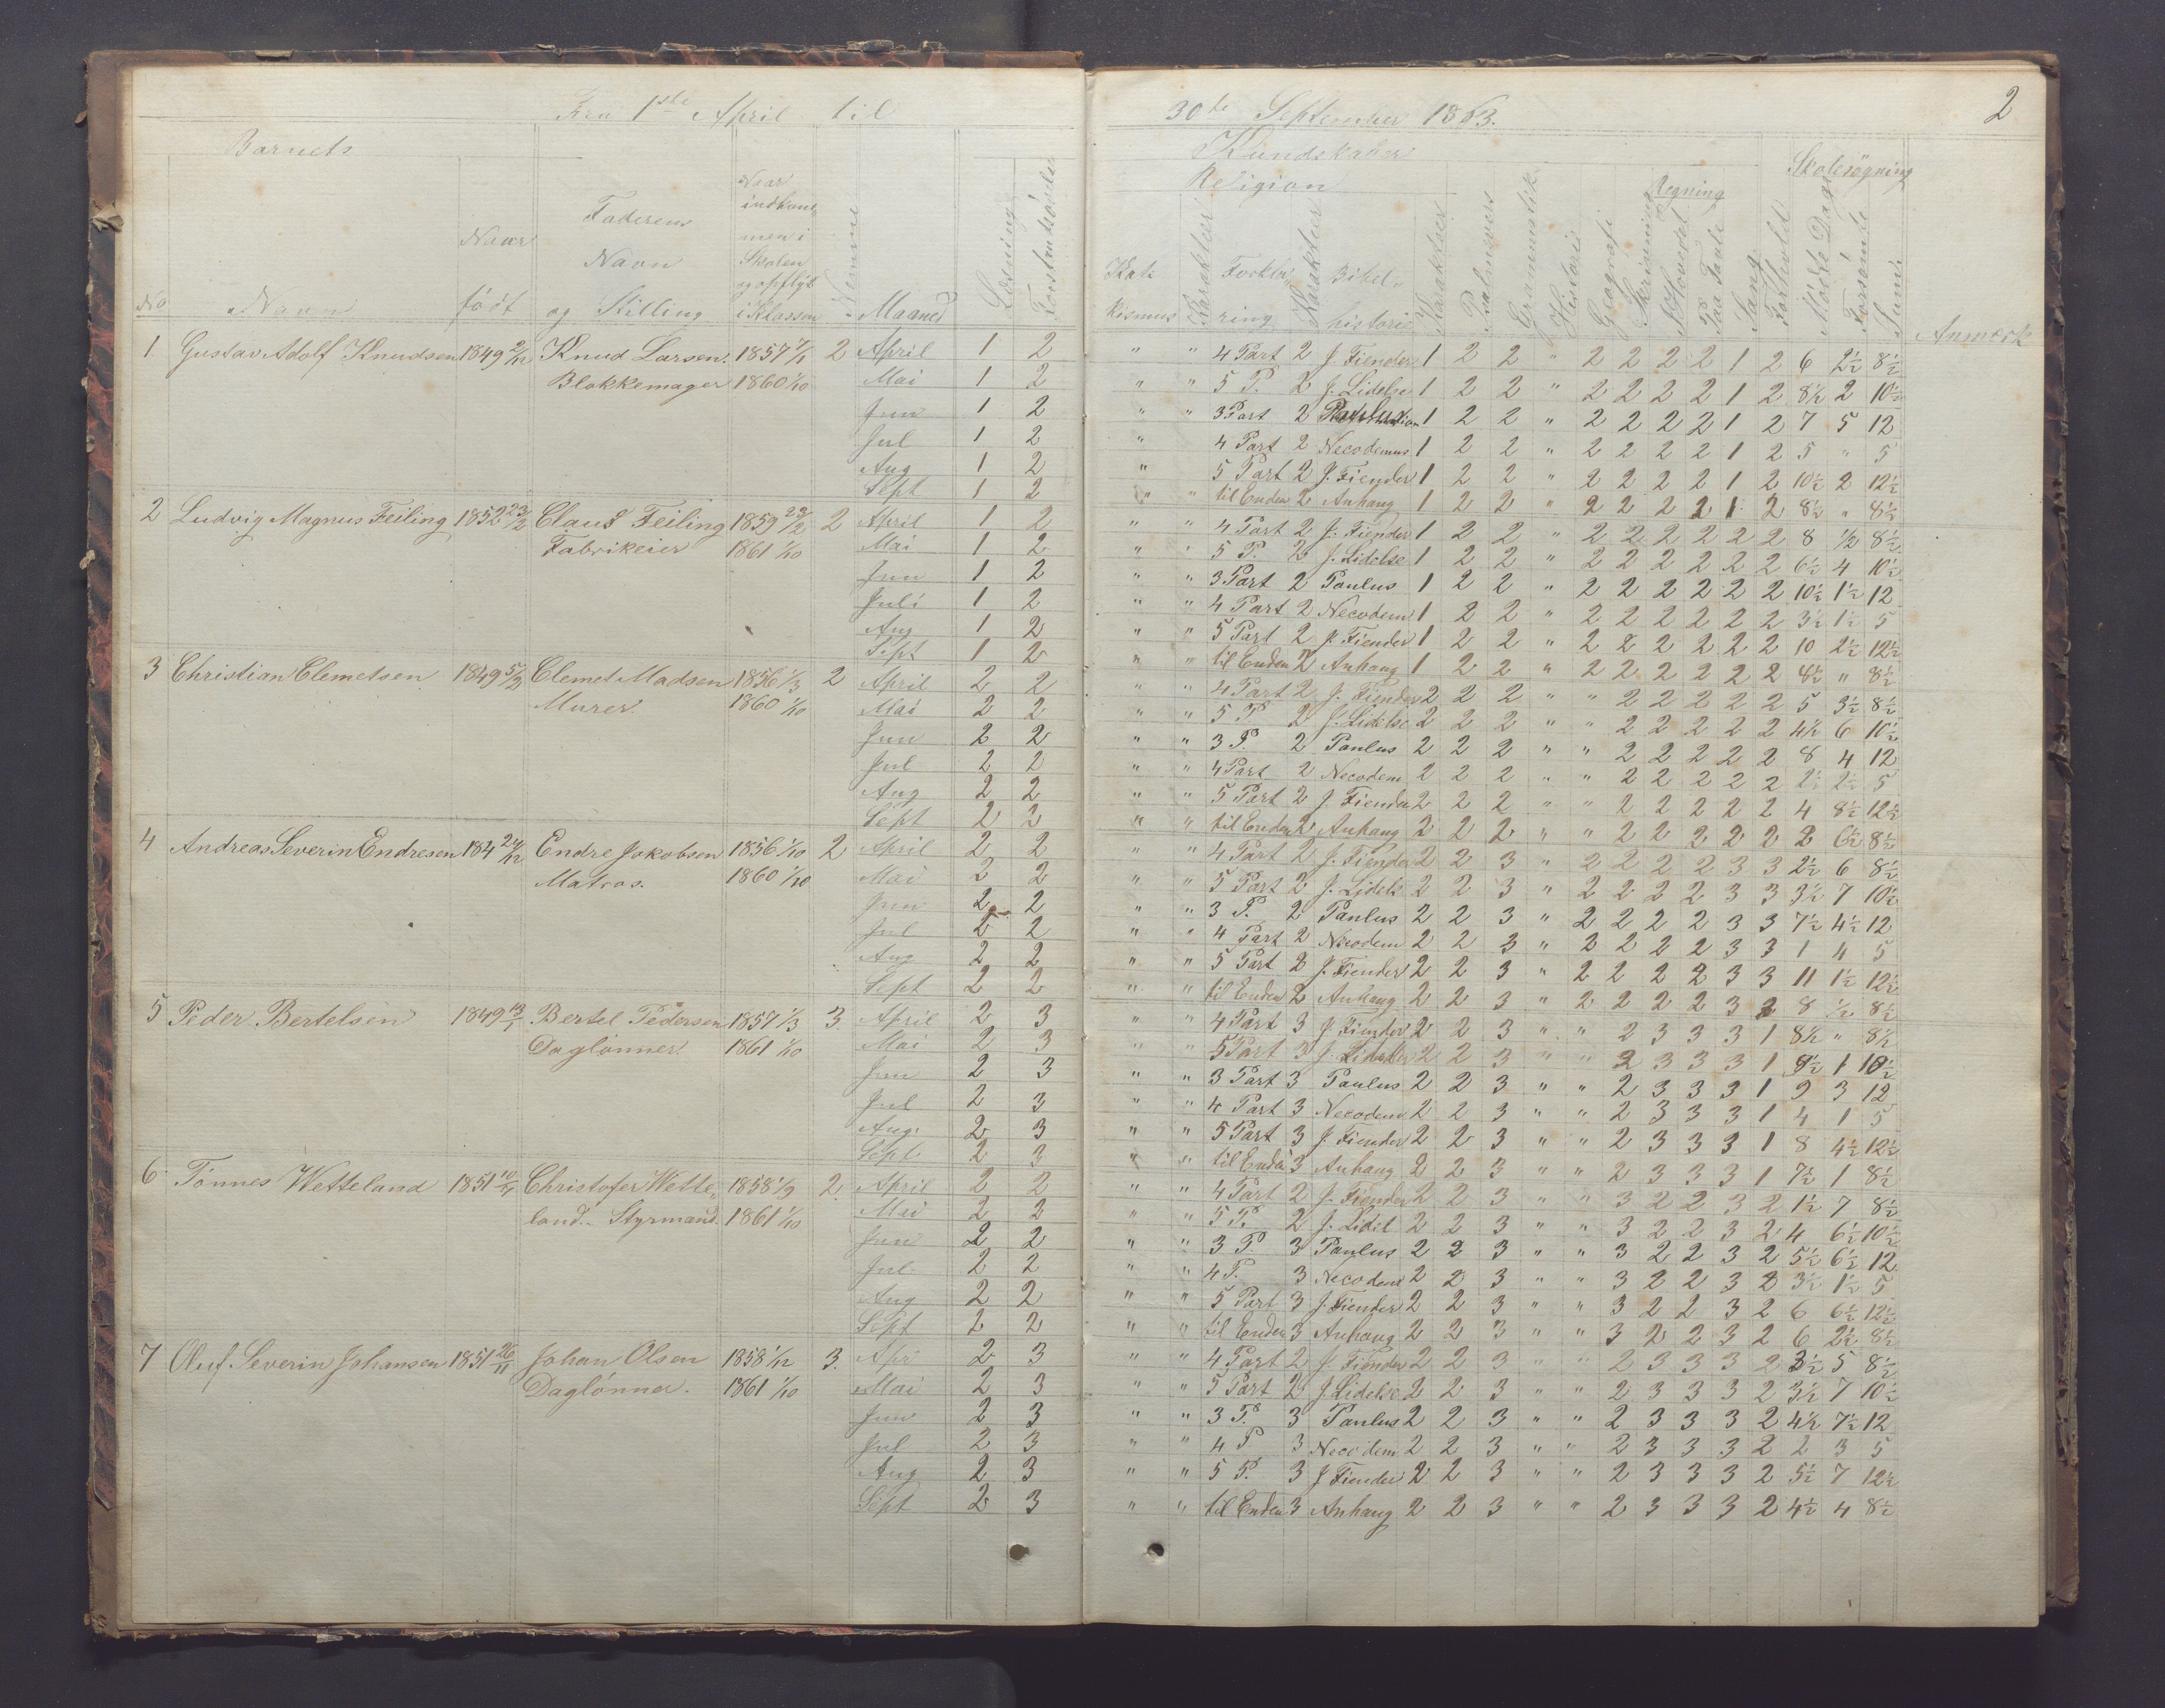 Fra 1ste April til
Barnets
No
Navn
Naar
født
Faderens
Navn
og Stilling
Naar
indkom
men i
Skolen
og opflyt
i Klassen
Nemme
Maaned
Læsning
Forstandsøvelse
1 Gustav Adolf Knudsen 1849 Knud Larsen. 1857 2 April 1 2
Blokkemager 1860 1/10 Mai 1 2
Jun 1 2
Jul 1 2
Aug 1 2
Sept 1 2
2 Ludvig Magnus Feiling 1852 23/2 Claus Feiling 1859 2 April 1 2
Fabrikeier 1861 1/10 Mai 1 2
Jun 1 2
Juli 1 2
Aug 1 2
Sept 1 2
3 Christian Clemetsen 1849 5/2 Clemet Madsen 1856 1/3 2 April 2 2
Murer. 1860 1/10 Mai 2 2
Jun 2 2
Jul 2 2
Aug 2 2
Sept 2 2
4 Andreas Severin Endresen 184 24/12 Endre Jakobsen 1856 1/10 2 April 2 2
Matros. 1860 1/10 Mai 2 2
Jun 2 2
Jul 2 2
Aug 2 2
Sept 2 2
5 Peder Bertelsen 1849 13/1 Bertel Pedersen 1857 1/3 3. April 2 3
Daglønner. 1861 1/10 Mai 2 3
Jun 2 3
Jul 2 3
Aug. 2 3
Sept 2 3
6 Tønnes Wetteland 1851 Christofer Wette„ 1858 1/9 2. April 2 2
land.. Styrmand. 1861 1/10 Mai 2 2
Jun 2 2
Jul. 2 2
Aug 2 2
Sept 2 2
7 Oluf Severin Johansen 1851 26/11 Johan Olsen 1858 1/12 3. Apr 2 3
Daglønner. 1861 1/10 Mai 2 3
Jun 2 3
Jul 2 3
Aug 2 3
Sept 2 3
30te September 1863.
2
Kundskaber
Religion
Regning
Skolesøgning
Kate
kismus
Karakter
Forkla„
ring
Karakter
Bibel„
historie
Karakter
Psalmevers
Grammatik
Historie
Geografi
Skrivning
I Hovedet
Paa Tavle
Sang
Forhold
Mødte Dage
Forsømte
Sum
Anmærk
" " 4 Part 2 J. Fiender 1 2 2 " 2 2 2 2 1 2 6 2½ 8½
" " 5 P. 2 J. Lidelse 1 2 2 " 2 2 2 2 1 2 8½ 2 10½
" " 3 Part 2 1 2 2 " 2 2 2 2 1 2 7 5 12
" 4 Part 2 Necodemus 1 2 2 " 2 2 2 2 1 2 5 " 5
" 5 Part 2 J. Fiender 1 2 2 " 2 2 2 2 1 2 10½ 2 12½
" " til Enden 2 Anhang 1 2 2 " 2 2 2 2 1 2 8½ " 8½
" " 4 Part 2 J. Fiender 1 2 2 " 2 2 2 2 2 2 8 ½ 8½
" " 5 P. 2 J. Lidelse 1 2 2 " 2 2 2 2 2 2 6½ 4 10½
" " 3 Part 2 Paulus 1 2 2 " 2 2 2 2 2 2 10½ 1½ 12
" " 4 Part 2 Necodem 1 2 2 " 2 2 2 2 2 2 3½ 1½ 5
" " 5 Part 2 J. Fiender 1 2 2 " 2 2 2 2 2 2 10 2½ 12½
" " til Enden 2 Anhang 1 2 2 " 2 2 2 2 2 2 8½ " 8½
" " 4 Part 2 J. Fiender 2 2 2 " " 2 2 2 2 2 5 3½ 8½
" " 5 P. 2 J. Lidelse 2 2 2 " " 2 2 2 2 2 4½ 6 10½
" " 3 P. 2 Paulus 2 2 2 " " 2 2 2 2 2 8 4 12
" " 4 Part 2 Necodem 2 2 2 " " 2 2 2 2 2 2½ 2½ 5
" " 5 Part 2 J. Fiender 2 2 2 " " 2 2 2 2 2 4 8½ 12½
" " til Enden 2 Anhang 2 2 2 " " 2 2 2 2 2 2 6½ 8½
" " 4 Part 2 J. Fiender 2 2 3 " 2 2 2 2 3 3 2½ 6 8½
" " 5 Part 2 J. Lidels 2 2 3 " 2 2 2 2 3 3 3½ 7 10½
" " 3 P. 2 Paulus 2 2 3 " 2 2 2 2 3 3 7½ 4½ 12
" " 4 Part 2 Necodem 2 2 3 " 2 2 2 2 3 3 1 4 5
" " 5 Part 2 J. Fiender 2 2 3 " 2 2 2 2 3 3 11 1½ 12½
" " til Enden 2 Anhang 2 2 3 " 2 2 2 2 3 2 8 ½ 8½
" " 4 Part 3 J. Fiender 2 2 3 " " 2 3 3 3 1 8½ " 8½
" " 5 Part 3 J. Lidelse 2 2 3 " " 2 3 3 3 1 9½ 1 10½
" " 3 Part 3 Paulus 2 2 3 " " 2 3 3 3 1 9 3 12
" " 4 Part 3 Necodem 2 2 3 " " 2 3 3 3 1 4 1 5
" " 5 Part 3 J. Fiender 2 2 3 " " 2 3 3 3 1 8 4½ 12½
" " til Ende 3 Anhang 2 2 3 " " 2 3 3 3 1 7½ 1 8½
" " 4 Part 2 J. Fiender 2 2 3 " " 3 2 2 3 2 1½ 7 8½
" " 5 P. 2 J. Lidel 2 2 3 " " 3 2 2 3 2 4 6½ 10½
" " 3 P. 3 Paulus 2 2 3 " " 3 2 2 3 2 5½ 6½ 12
" " 4 P. 3 Necodem 2 2 3 " " 3 2 2 3 2 3½ 1½ 5
" " 5 Part 3 J. Fiender 2 2 3 " " 3 2 2 3 2 6 6½ 12½
" " til Enden 3 Anhang 2 2 3 " " 3 2 2 3 2 6 2½ 8½
" " 4 Part 2 J. Fiender 2 2 3 " " 2 3 3 3 2 3½ 5 8½
" " 5 Part 2 J. Lidelse 2 2 3 " " 2 3 3 3 2 3½ 7 10½
" " 3 P. 3 Paulus 2 2 3 " " 2 3 3 3 2 4½ 7½ 12
" " 4 P 3 Necodem 2 2 3 " " 2 3 3 3 2 2 3 5
" " 5 P. 3 J Fiender 2 2 3 " " 2 3 3 3 2 5½ 7 12½
" " til Enden 3 Anhang 2 2 3 " " 2 3 3 3 2 4½ 4 8½